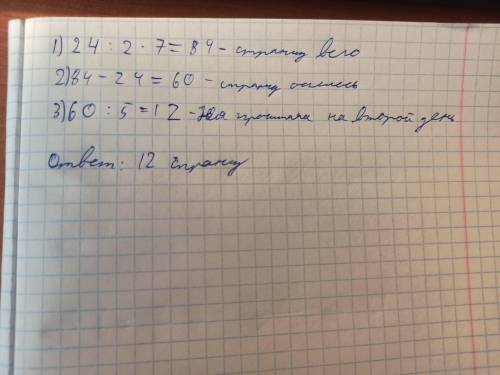 1) 24 : 2 · 7 = 84 - страниц всего
2) 84 - 24 = 60 - страниц осталось
3) 60 : 5 = 12 - Зоя прочитала на второй день
Ответ: 12 страниц